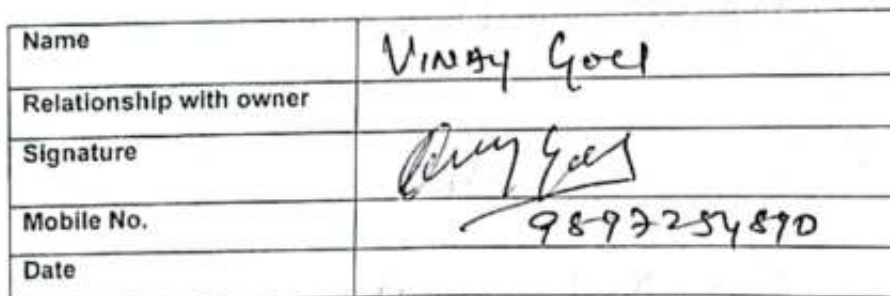 Name VINAY Goel
Relationship with owner
Signature
Mobile No. 9897254890
Date